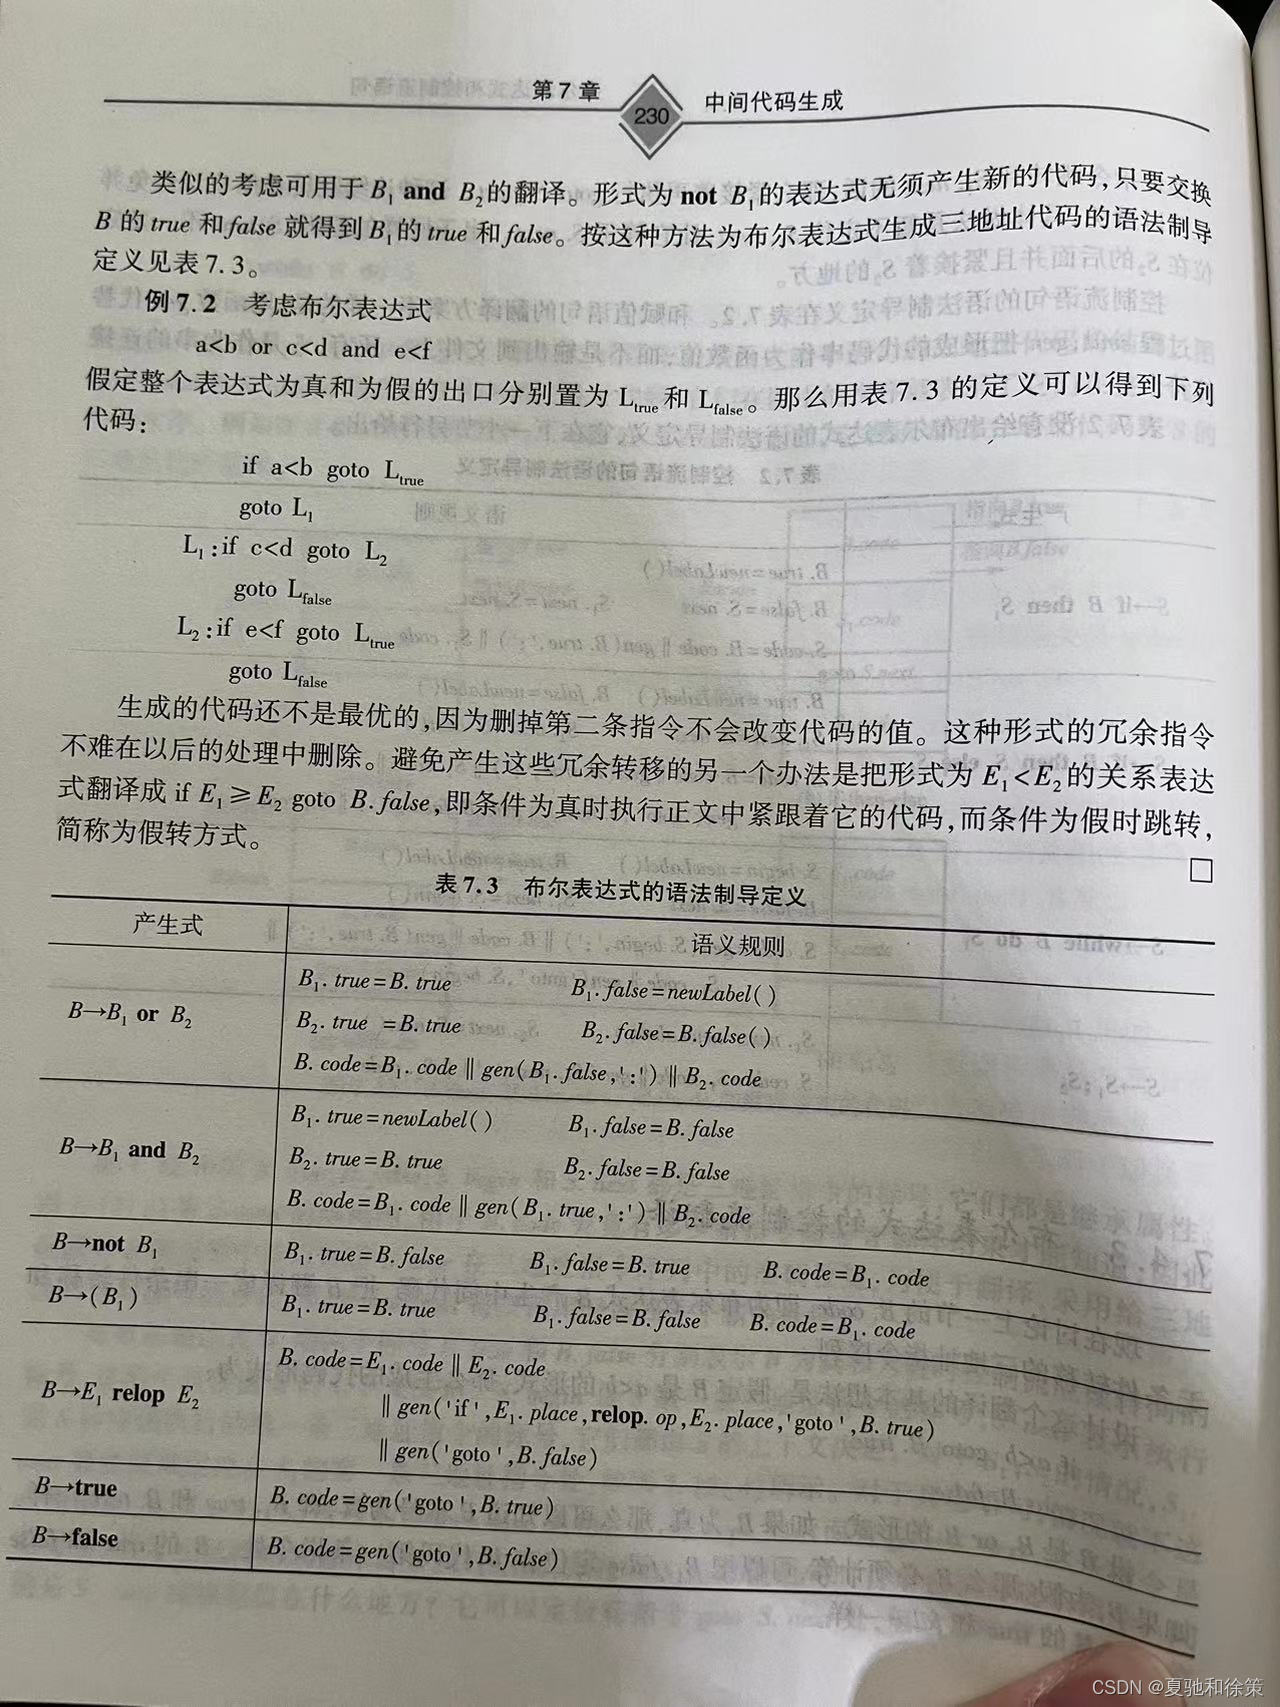 第7章 230 中间代码生成
类似的考虑可用于B₁ and B₂的翻译。形式为not B₁的表达式无须产生新的代码,只要交换
B的true和false就得到B₁的true和false。按这种方法为布尔表达式生成三地址代码的语法制导
定义见表7.3。
例7.2 考虑布尔表达式
a<b or c<d and e<f
假定整个表达式为真和为假的出口分别置为Ltrue和Lfalse。那么用表7.3的定义可以得到下列
代码:
if a<b goto Ltrue
goto L₁
L₁:if c<d goto L₂
goto Lfalse
L₂:if e<f goto Ltrue
goto Lfalse
生成的代码还不是最优的,因为删掉第二条指令不会改变代码的值。这种形式的冗余指令
不难在以后的处理中删除。避免产生这些冗余转移的另一个办法是把形式为E₁<E₂的关系表达
式翻译成if E₁≥E₂ goto B.false,即条件为真时执行正文中紧跟着它的代码,而条件为假时跳转,
简称为假转方式。 □
表7.3 布尔表达式的语法制导定义
产生式 语义规则
B→B₁ or B₂
B₁.true=B.true B₁.false=newLabel()
B₂.true =B.true B₂.false=B.false()
B.code=B₁.code‖gen(B₁.false,':')‖B₂.code
B→B₁ and B₂
B₁.true=newLabel() B₁.false=B.false
B₂.true=B.true B₂.false=B.false
B.code=B₁.code‖gen(B₁.true,':')‖B₂.code
B→not B₁ B₁.true=B.false B₁.false=B.true B.code=B₁.code
B→(B₁) B₁.true=B.true B₁.false=B.false B.code=B₁.code
B→E₁ relop E₂
B.code=E₁.code‖E₂.code
‖gen('if',E₁.place,relop.op,E₂.place,'goto',B.true)
‖gen('goto',B.false)
B→true B.code=gen('goto',B.true)
B→false B.code=gen('goto',B.false)
CSDN @夏驰和徐策